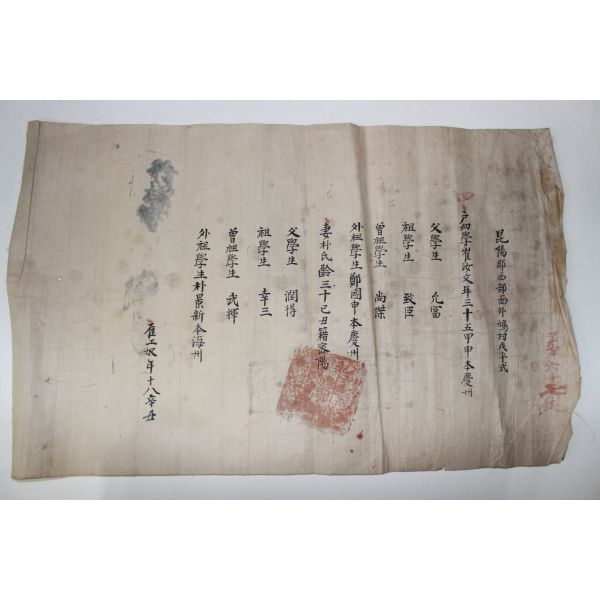 昆陽郡西部面外鳩村戊午式
戶幼學崔汝文年三十五甲申本慶州
父學生 允富
祖學生 致臣
曾祖學生 尚傑
外祖學生鄭國申本慶州
妻朴氏齡三十己丑籍密陽
父學生 潤得
祖學生 幸三
曾祖學生 武輝
外祖學生朴景新本海州
雇工奴年十八辛丑